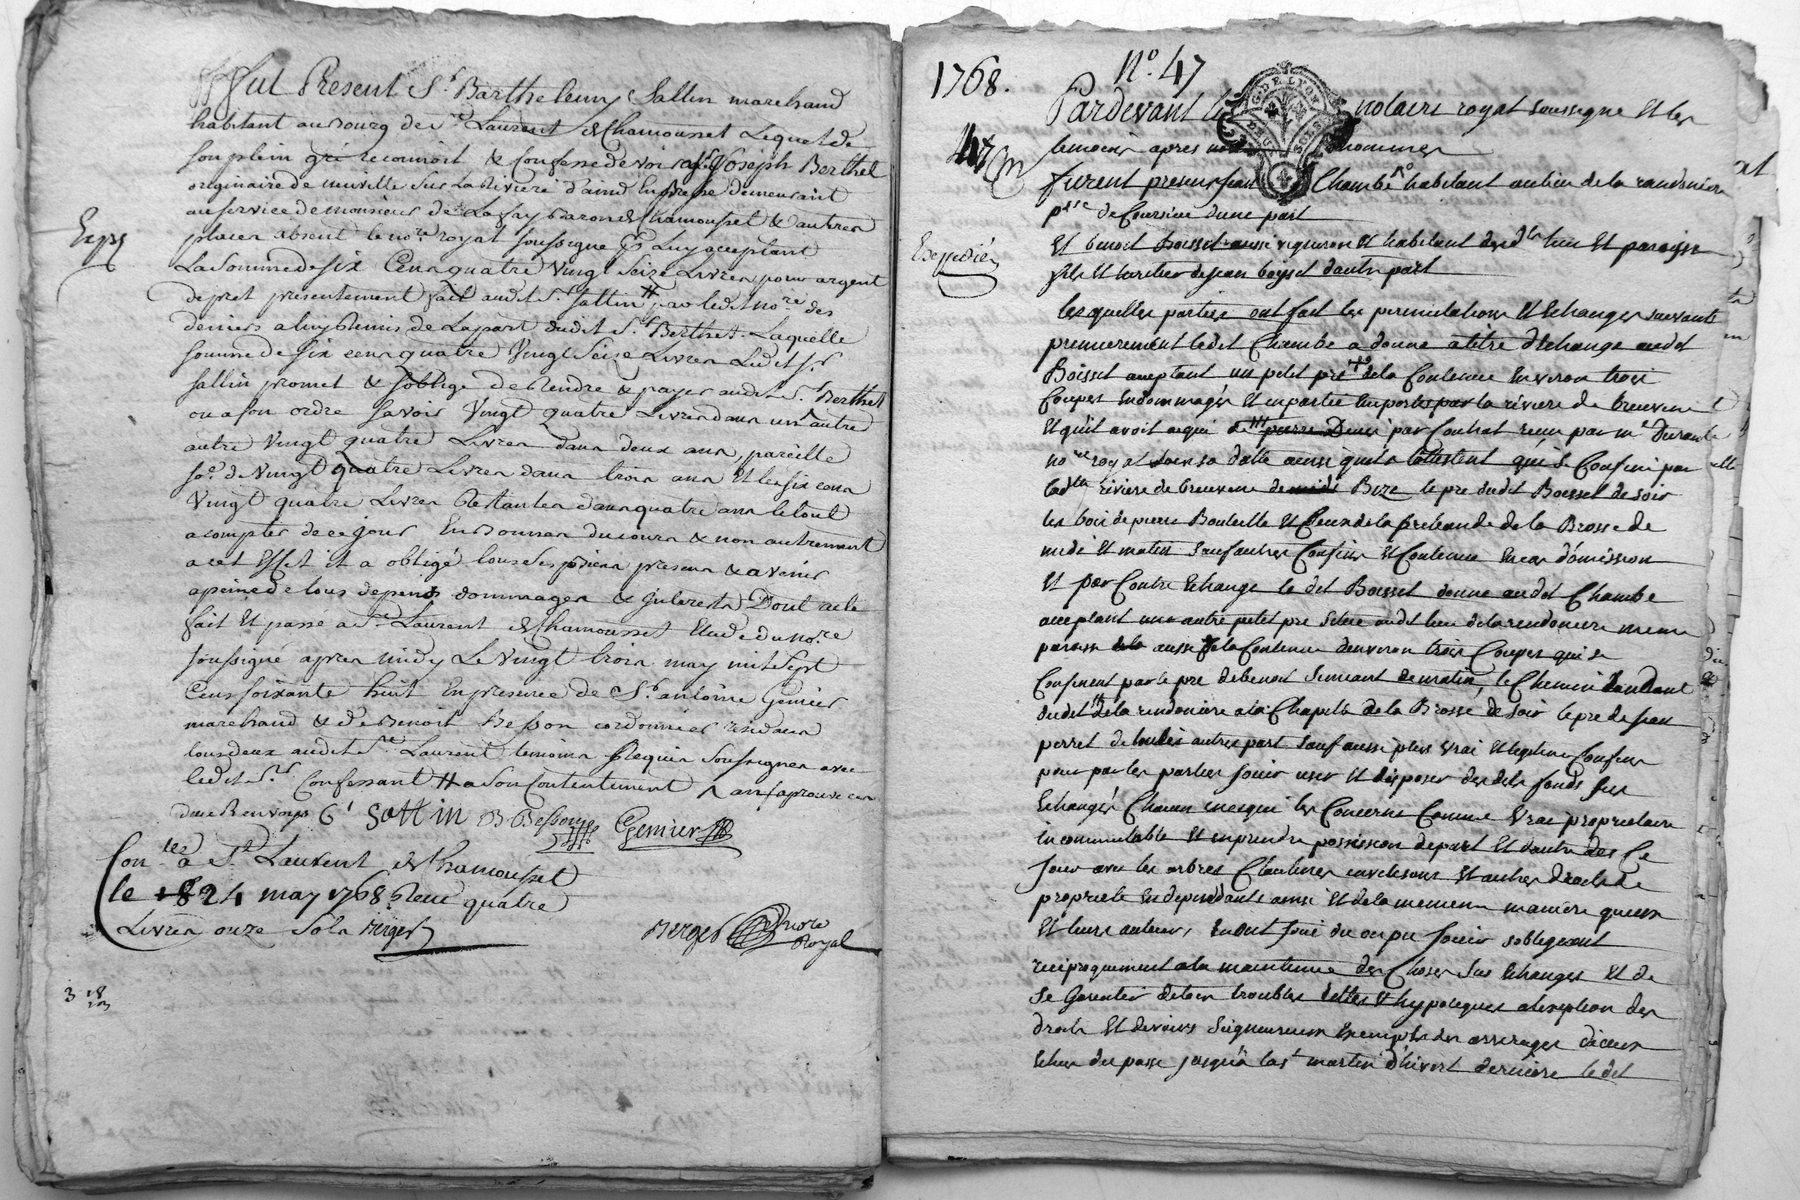 Fut Present Sr. Barthelemy Sattin marchand
habitant au Bourg de St. Laurent de Chamousset Lequel de
son plein gré reconnoit & Confesse devoir a Sr. Joseph Berthet
originaire de neuville Sur La Riviere d'aind En Bresse demeurant
au service de monsieur de La fay Baron de Chamousset & autres
places absent le nore. royal soussigné pr. Luy acceptant
La Somme de Six Cens quatre vingt Seize Livres pour argent
de pret presentement fait audit Sr. Sattin # par ledit nore. des
deniers a luy Remis de La part dudit Sr. Berthet Laquelle
somme de Six cens quatre Vingt Seize Livres Ledit Sr.
Sattin promet & s'oblige de Rendre & payer audit Sr. Berthet
ou a son ordre Savoir Vingt quatre Livres dans un an
autre Vingt quatre Livres dans deux ans pareille
so.e de Vingt quatre Livres dans trois ans Et les six cens
Vingt quatre Livres Restantes dans quatre ans le tout
a compter de ce jour En Bonnes du cours & non autrement
a cet Effet il a obligé tous ses biens presens & avenir
a peine de tous depens dommages & Interets Dont acte
fait Et passé a St. Laurent de Chamousset Etude du nore.
soussigné apres midy Le Vingt trois may mil Sept
Cens soixante huit En presence de Sr. antoine Gemier
marchand & de Benoit Besson cordonnier residans
tous deux audit St. Laurent temoins Requis Soussignes avec
ledit Sr. Confessant # a Son Contentement
deux Renvoys Sattin B Besson Gemier
Conlé. a St. Laurent de Chamousset
le 24 may 1768 Reçu quatre
Livres onze Sols Berger
Berger Nore
Royal
3 18
Expé
1768. No. 47
G. DE LYON
Pardevant le notaire royal soussigné Et les
temoins apres nommes
furent presens Jean Chambe habitant au lieu de la randoniere
psse de Courzieu dune part
Et benoit Boisset aussi vigneron Et habitant desdts lieu Et paroisse
fils Et heritier de Jean boisset dautre part
Expedié
Lesquelles parties ont fait les permutations Et Echanges suivants
premierement ledit Chambe a donné a titre d'Echange audit
Boisset aceptant un petit pré de la Contenue Environ trois
Coupes Endommagés Et en partie Emportes par la riviere de brevenne
Et quil avoit aqui de pierre par Contrat recu par me Durand
nore royal sous sa datte ainsi quils lattestent qui se Confine par
ladte riviere de brevenne de Bize le pre dudit Boisset de soir
les bois de pierre Bouteille Et Ceux de la prebande de la Brosse de
midi Et matin sauf autres Confins Et Contenue En cas d'omission
Et par Contre Echange le dit Boisset donne audit Chambe
aceptant un autre petit pre Situe audit lieu de la rendoniere meme
paroisse aussi de la Contenue denviron trois Coupes qui se
Confinent par le pre de benoit Simeant de matin, le Chemin tendant
dudit de la rendoniere a la Chapele de la Brosse de soir le pre de Jean
perret de toutes autres part sauf aussi plus vrai Et legitime Confins
pour par les parties Jouir user Et disposer desdits fonds sus
Echangés Chacun En ce qui les Concerne Comme vrai proprietaire
incommutable Et en prendre possession de part Et dautre des Ce
Jour avec les arbres Clotures Et autres droits de
propriete En dependants ainsi Et de la meme maniere queux
Et leurs auteurs En ont Joui du ou pu Jouir s'obligeant
reciproquement a la maintenue des Choses sus Echanges Et de
se Garentir de tous troubles dettes & hypoteques a l'exeption des
droits Et devoirs Seigneuriaux Exempts des arrerages diceux
Echus du passe jusqu'a la St martin d'hivert derniere le dit